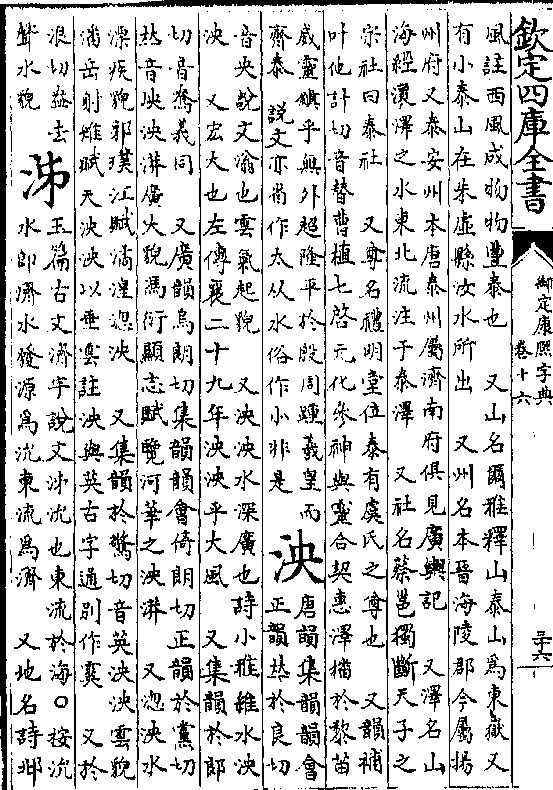 欽定四庫全書
御定康熙字典
卷十六
三十六
風註西風成物物豐泰也 又山名爾雅釋山泰山為東嶽又
有小泰山在朱虛縣汶水所出 又州名本晉海陵郡今屬揚
州府又泰安州本唐泰州屬濟南府俱見廣輿記 又澤名山
海經瀵澤之水東北流注于泰澤 又社名蔡邕獨斷天子之
宗社曰泰社 又尊名禮明堂位泰有虞氏之尊也 又韻補
叶他計切音替曹植七啓元化參神與靈合契惠澤播於黎苗
威靈鎮乎無外超隆平於殷周踵羲皇而
齊泰 說文亦省作太从水俗作小非是
泱
唐韻集韻韻會
正韻𠀤於良切
音央說文滃也雲氣起貌 又泱泱水深廣也詩小雅維水泱
泱 又宏大也左傳襄二十九年泱泱乎大風 又集韻於郎
切音鴦義同 又廣韻烏朗切集韻韻會倚朗切正韻於黨切
𠀤音坱泱漭廣大貌馮衍顯志賦覽河華之泱漭 又淴泱水
深疾貌郭璞江賦潏湟淴泱 又集韻於驚切音英泱泱雲貌
潘岳射雉賦天泱泱以垂雲註泱與英古字通別作霙 又於
浪切盎去
聲水貌
泲
玉篇古文濟字說文泲沇也東流於海○按沇
水即濟水發源為沇東流為濟 又地名詩邶